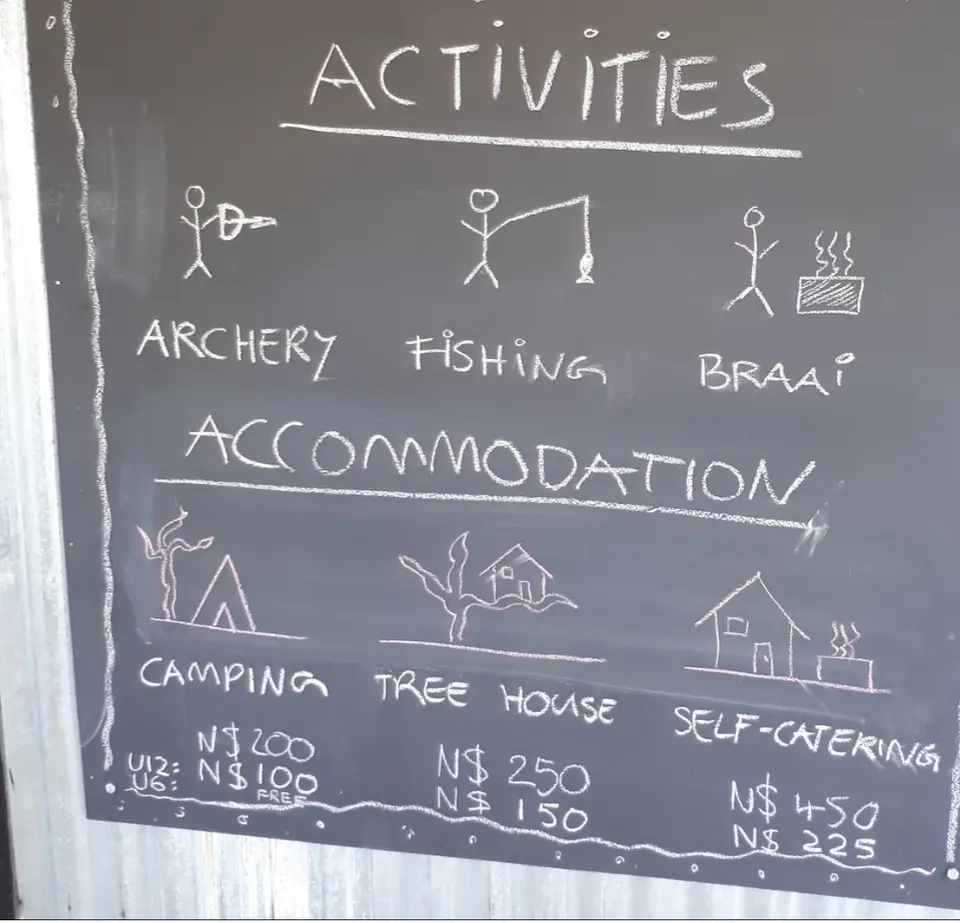 ACTIVITIES
ARCHERY FISHING BRAAI
ACCOMMODATION
CAMPING TREE HOUSE SELF-CATERING
N$200 N$ 250 N$ 450
U12: N$100 N$ 150 N$ 225
U6: FREE